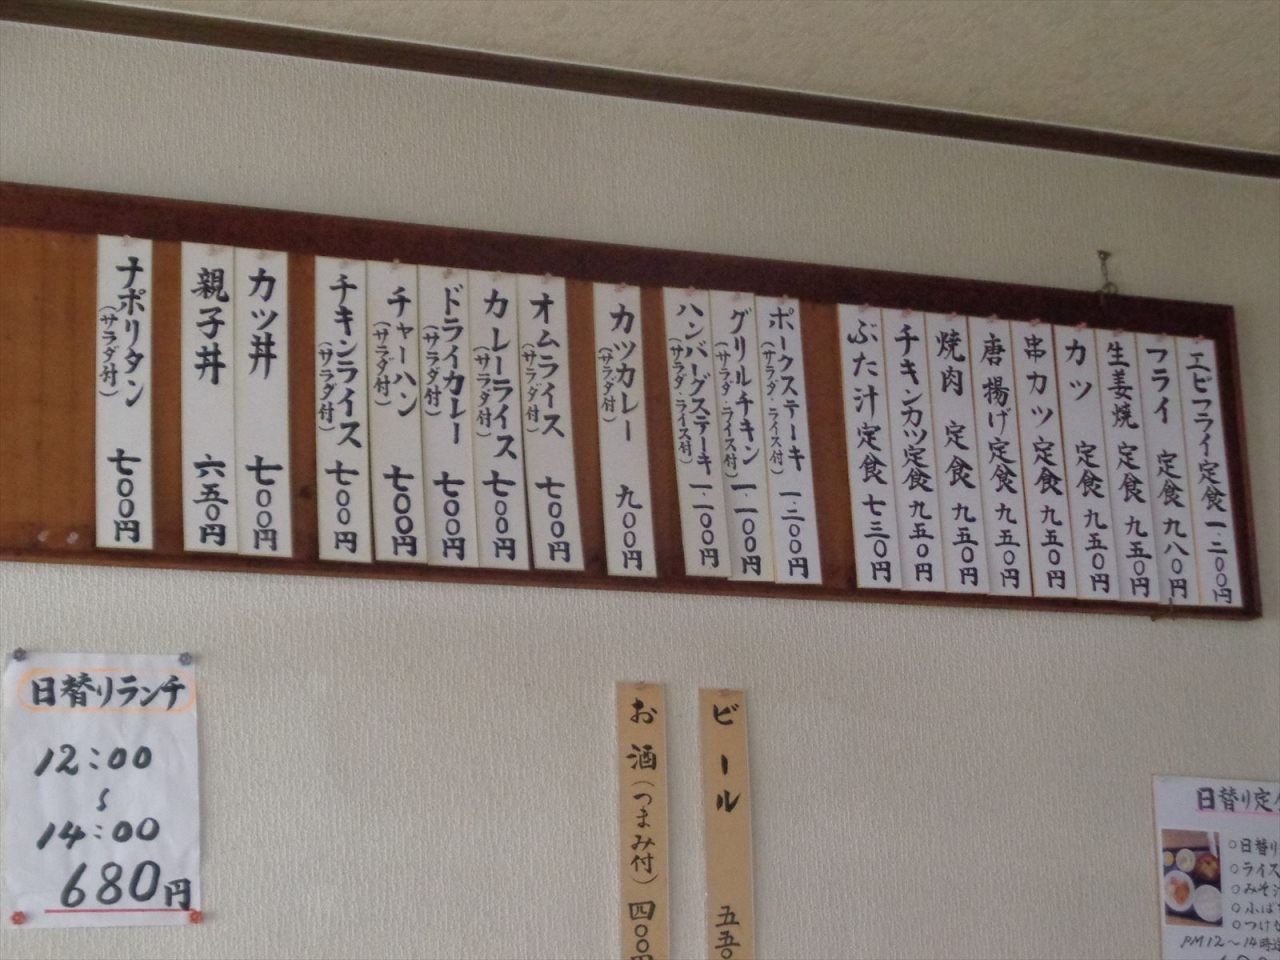 エビフライ定食 一.二〇〇円
フライ 定食 九八〇円
生姜焼 定食 九五〇円
カツ 定食 九五〇円
串カツ定食 九五〇円
唐揚げ定食 九五〇円
焼肉 定食 九五〇円
チキンカツ定食 九五〇円
ぶた汁定食 七三〇円
ポークステーキ(サラダ・ライス付) 一.二〇〇円
グリルチキン(サラダ・ライス付) 一.一〇〇円
ハンバーグステーキ(サラダ・ライス付) 一.一〇〇円
カツカレー(サラダ付) 九〇〇円
オムライス(サラダ付) 七〇〇円
カレーライス(サラダ付) 七〇〇円
ドライカレー(サラダ付) 七〇〇円
チャーハン(サラダ付) 七〇〇円
チキンライス(サラダ付) 七〇〇円
カツ丼 七〇〇円
親子丼 六五〇円
ナポリタン(サラダ付) 七〇〇円
日替りランチ
12:00
〜
14:00
680円
ビール 五五〇
お酒(つまみ付) 四〇〇円
日替り定
○日替り
○ライス
○みそ汁
PM12〜14時